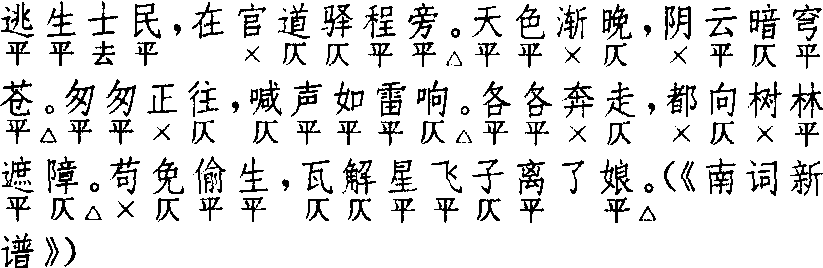 逃生士民，在官道驿程旁。天色渐晚，阴云暗穹
平平去平 ×仄仄平平△平平×仄 ×平仄平
苍。匆匆正往，喊声如雷响。各各奔走，都向树林
平△平平×仄 仄平平平仄△平平×仄 ×仄×平
遮障。苟免偷生，瓦解星飞子离了娘。(《南词新
平仄△×仄平平 仄仄平平仄平 平△
谱》)